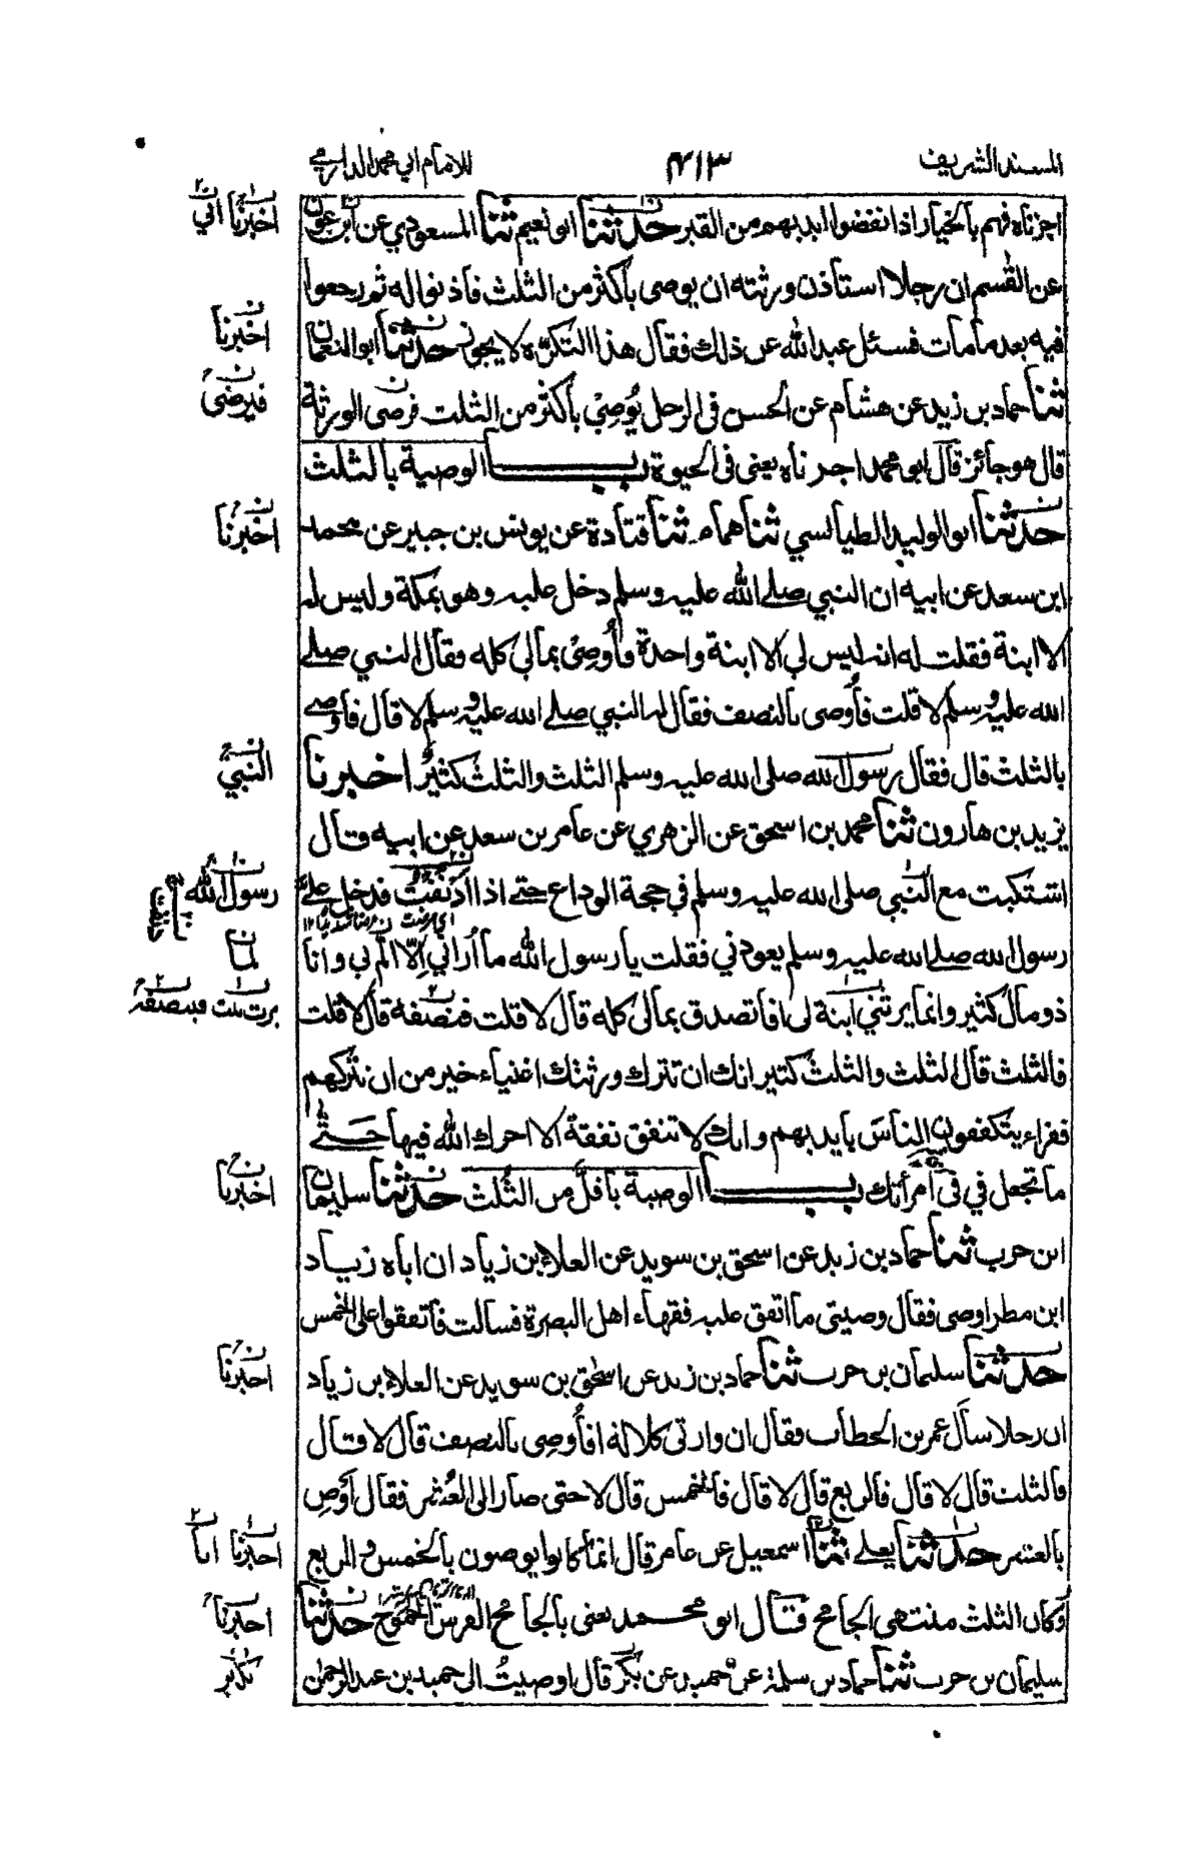 المسند الشريف ٤١٣ للامام ابي محمد الدارمي
اجزناه فهم بالخيار اذا نفضوا ايديهم من القبر حدثنا ابو نعيم ثنا المسعودي عن ابي عون
عن القسم ان رجلا استأذن ورثته ان يوصى بأكثر من الثلث فأذنوا له ثم رجعوا
فيه بعد ما مات فسئل عبد الله عن ذلك فقال هذا التكرّه لا يجوز حدثنا ابو النعمان
ثنا حماد بن زيد عن هشام عن الحسن فى الرجل يُوصِيْ بأكثر من الثلث فرضى الورثة
قال هو جائز قال ابو محمد اجزناه يعنى فى الحيوة باب الوصية بالثلث
حدثنا ابو الوليد الطيالسي ثنا همام ثنا قتادة عن يونس بن جبير عن محمد
ابن سعد عن ابيه ان النبي صلى الله عليه وسلم دخل عليه وهو بمكة وليس له
الا ابنة فقلت له انه ليس لي الا ابنة واحدة فأُوصِىْ بمالي كله فقال النبي صلى
الله عليه وسلم لا قلت فأُوصى بالنصف فقال له النبي صلى الله عليه وسلم لا قال فأوصى
بالثلث قال فقال رسول الله صلى الله عليه وسلم الثلث والثلث كثيرٌ اخبرنا
يزيد بن هارون ثنا محمد بن اسحق عن الزهري عن عامر بن سعد عن ابيه قال
اشتكيت مع النبي صلى الله عليه وسلم في حجة الوداع حتى اذا ادنفت فدخل علىّ
رسول الله صلى الله عليه وسلم يعودني فقلت يا رسول الله ما أُراني إلّا ألم بي وانا
ذو مال كثير وانما يرثني ابنة لى افاتصدق بمالى كله قال لا قلت فنصفه قال لا قلت
فالثلث قال الثلث والثلث كثير انك ان تترك ورثتك اغنياء خير من ان تتركهم
فقراء يتكففون الناس بايديهم وانك لا تنفق نفقة الا اجرك الله فيها حَتّٰى
ما تجعل في في امرأتك باب الوصية بأقلّ من الثُلث حدثنا سليمان
ابن حرب ثنا حماد بن زيد عن اسحق بن سويد عن العلاء بن زياد ان اباه زياد
ابن مطر اوصى فقال وصيتى ما اتفق عليه فقهاء اهل البصرة فسألت فاتفقوا على الخمس
حدثنا سليمان بن حرب ثنا حماد بن زيد عن اسحٰق بن سويد عن العلاء بن زياد
ان رجلا سأل عمر بن الخطاب فقال ان وارثى كلالة افأُوصى بالنصف قال لا قال
فالثلث قال لا قال فالربع قال لا قال فالخمس قال لا حتى صار الى العُشر فقال أَوْصِ
بالعشر حدثنا يعلى ثنا اسمعيل عن عامر قال انما كانوا يوصون بالخمس والربع
وكان الثلث منتهى الجامح قال ابو محمد يعنى بالجامح الفرس الجموح حدثنا
سليمان بن حرب ثنا حماد بن سلمة عن حميد عن بكر قال اوصيتُ الى حميد بن عبد الرحمٰن
اخبرنا
اخبرنا
فيرضى
اخبرنا
النبي
رسول الله
لما
اخبرنا
اخبرنا
اخبرنا انا
اخبرنا